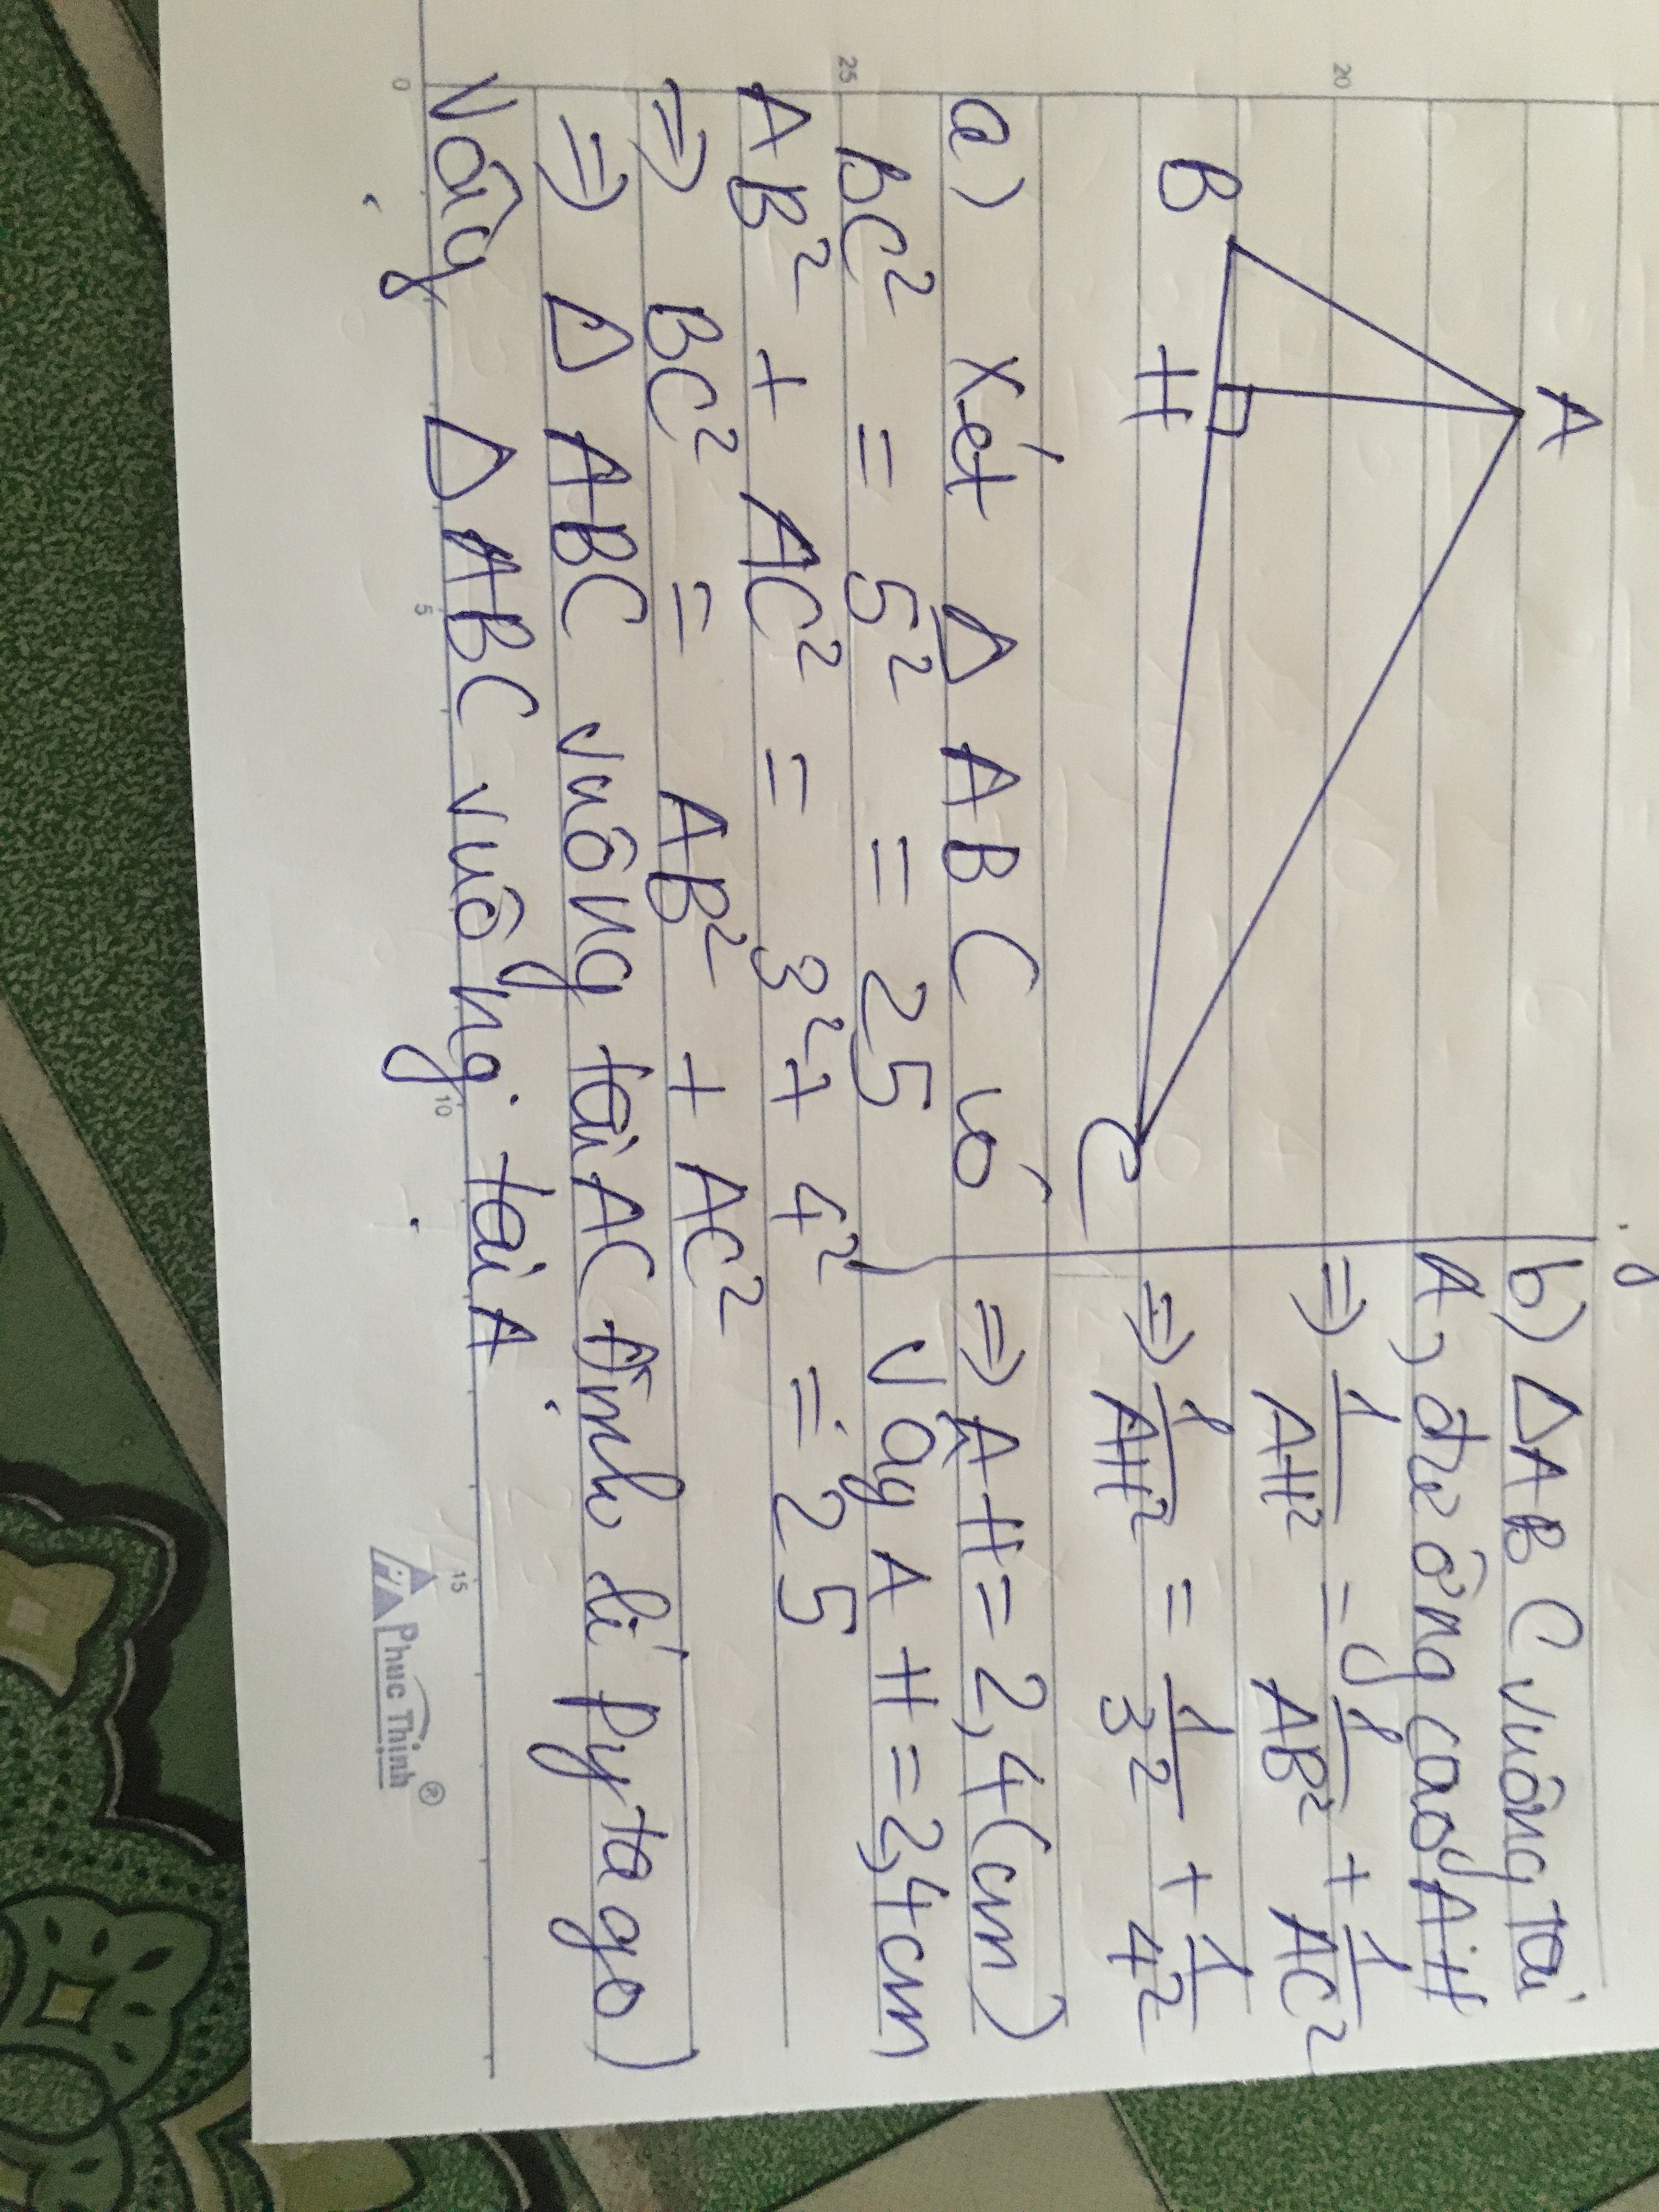 A
B
H
C
a) Xét Δ ABC có
BC² = 5² = 25
AB² + AC² = 3² + 4² = 25
⇒ BC² = AB² + AC²
⇒ Δ ABC vuông tại A( Định lí Pytago)
Vậy Δ ABC vuông tại A
b) ΔABC vuông tại
A, đường cao AH
⇒ 1/AH² = 1/AB² + 1/AC²
⇒ 1/AH² = 1/3² + 1/4²
⇒ AH = 2,4 (cm)
Vậy AH = 2,4 cm
20
25
0
5
10
15
Phuc Thinh ®